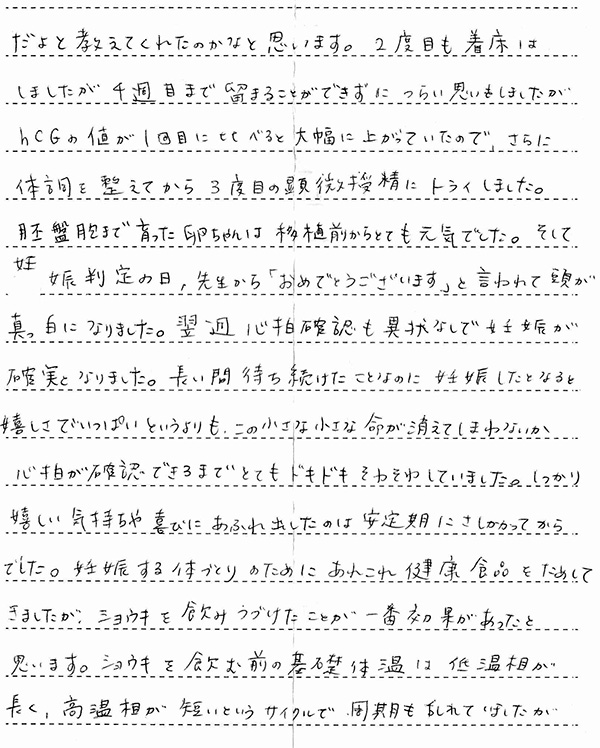 だよと教えてくれたのかなと思います。2度目も着床は
しましたが4週目まで留まることができずにつらい思いもしましたが
hCGの値が1回目に比べると大幅に上がっていたので、さらに
体調を整えてから3度目の顕微授精にトライしました。
胚盤胞まで育った卵ちゃんは移植前からとても元気でした。そして
妊娠判定の日、先生から「おめでとうございます」と言われて頭が
真っ白になりました。翌週心拍確認も異状なしで妊娠が
確実となりました。長い間待ち続けたことなのに妊娠したとなると
嬉しさでいっぱいというよりも、この小さな小さな命が消えてしまわないか
心拍が確認できるまでとてもドキドキそわそわしていました。しっかり
嬉しい気持ちや喜びにあふれ出したのは安定期にさしかかってから
でした。妊娠する体づくりのためにあれこれ健康食品をためして
きましたが、ショウキを飲みつづけたことが一番効果があったと
思います。ショウキを飲む前の基礎体温は低温相が
長く、高温相が短いというサイクルで周期も乱れていましたが